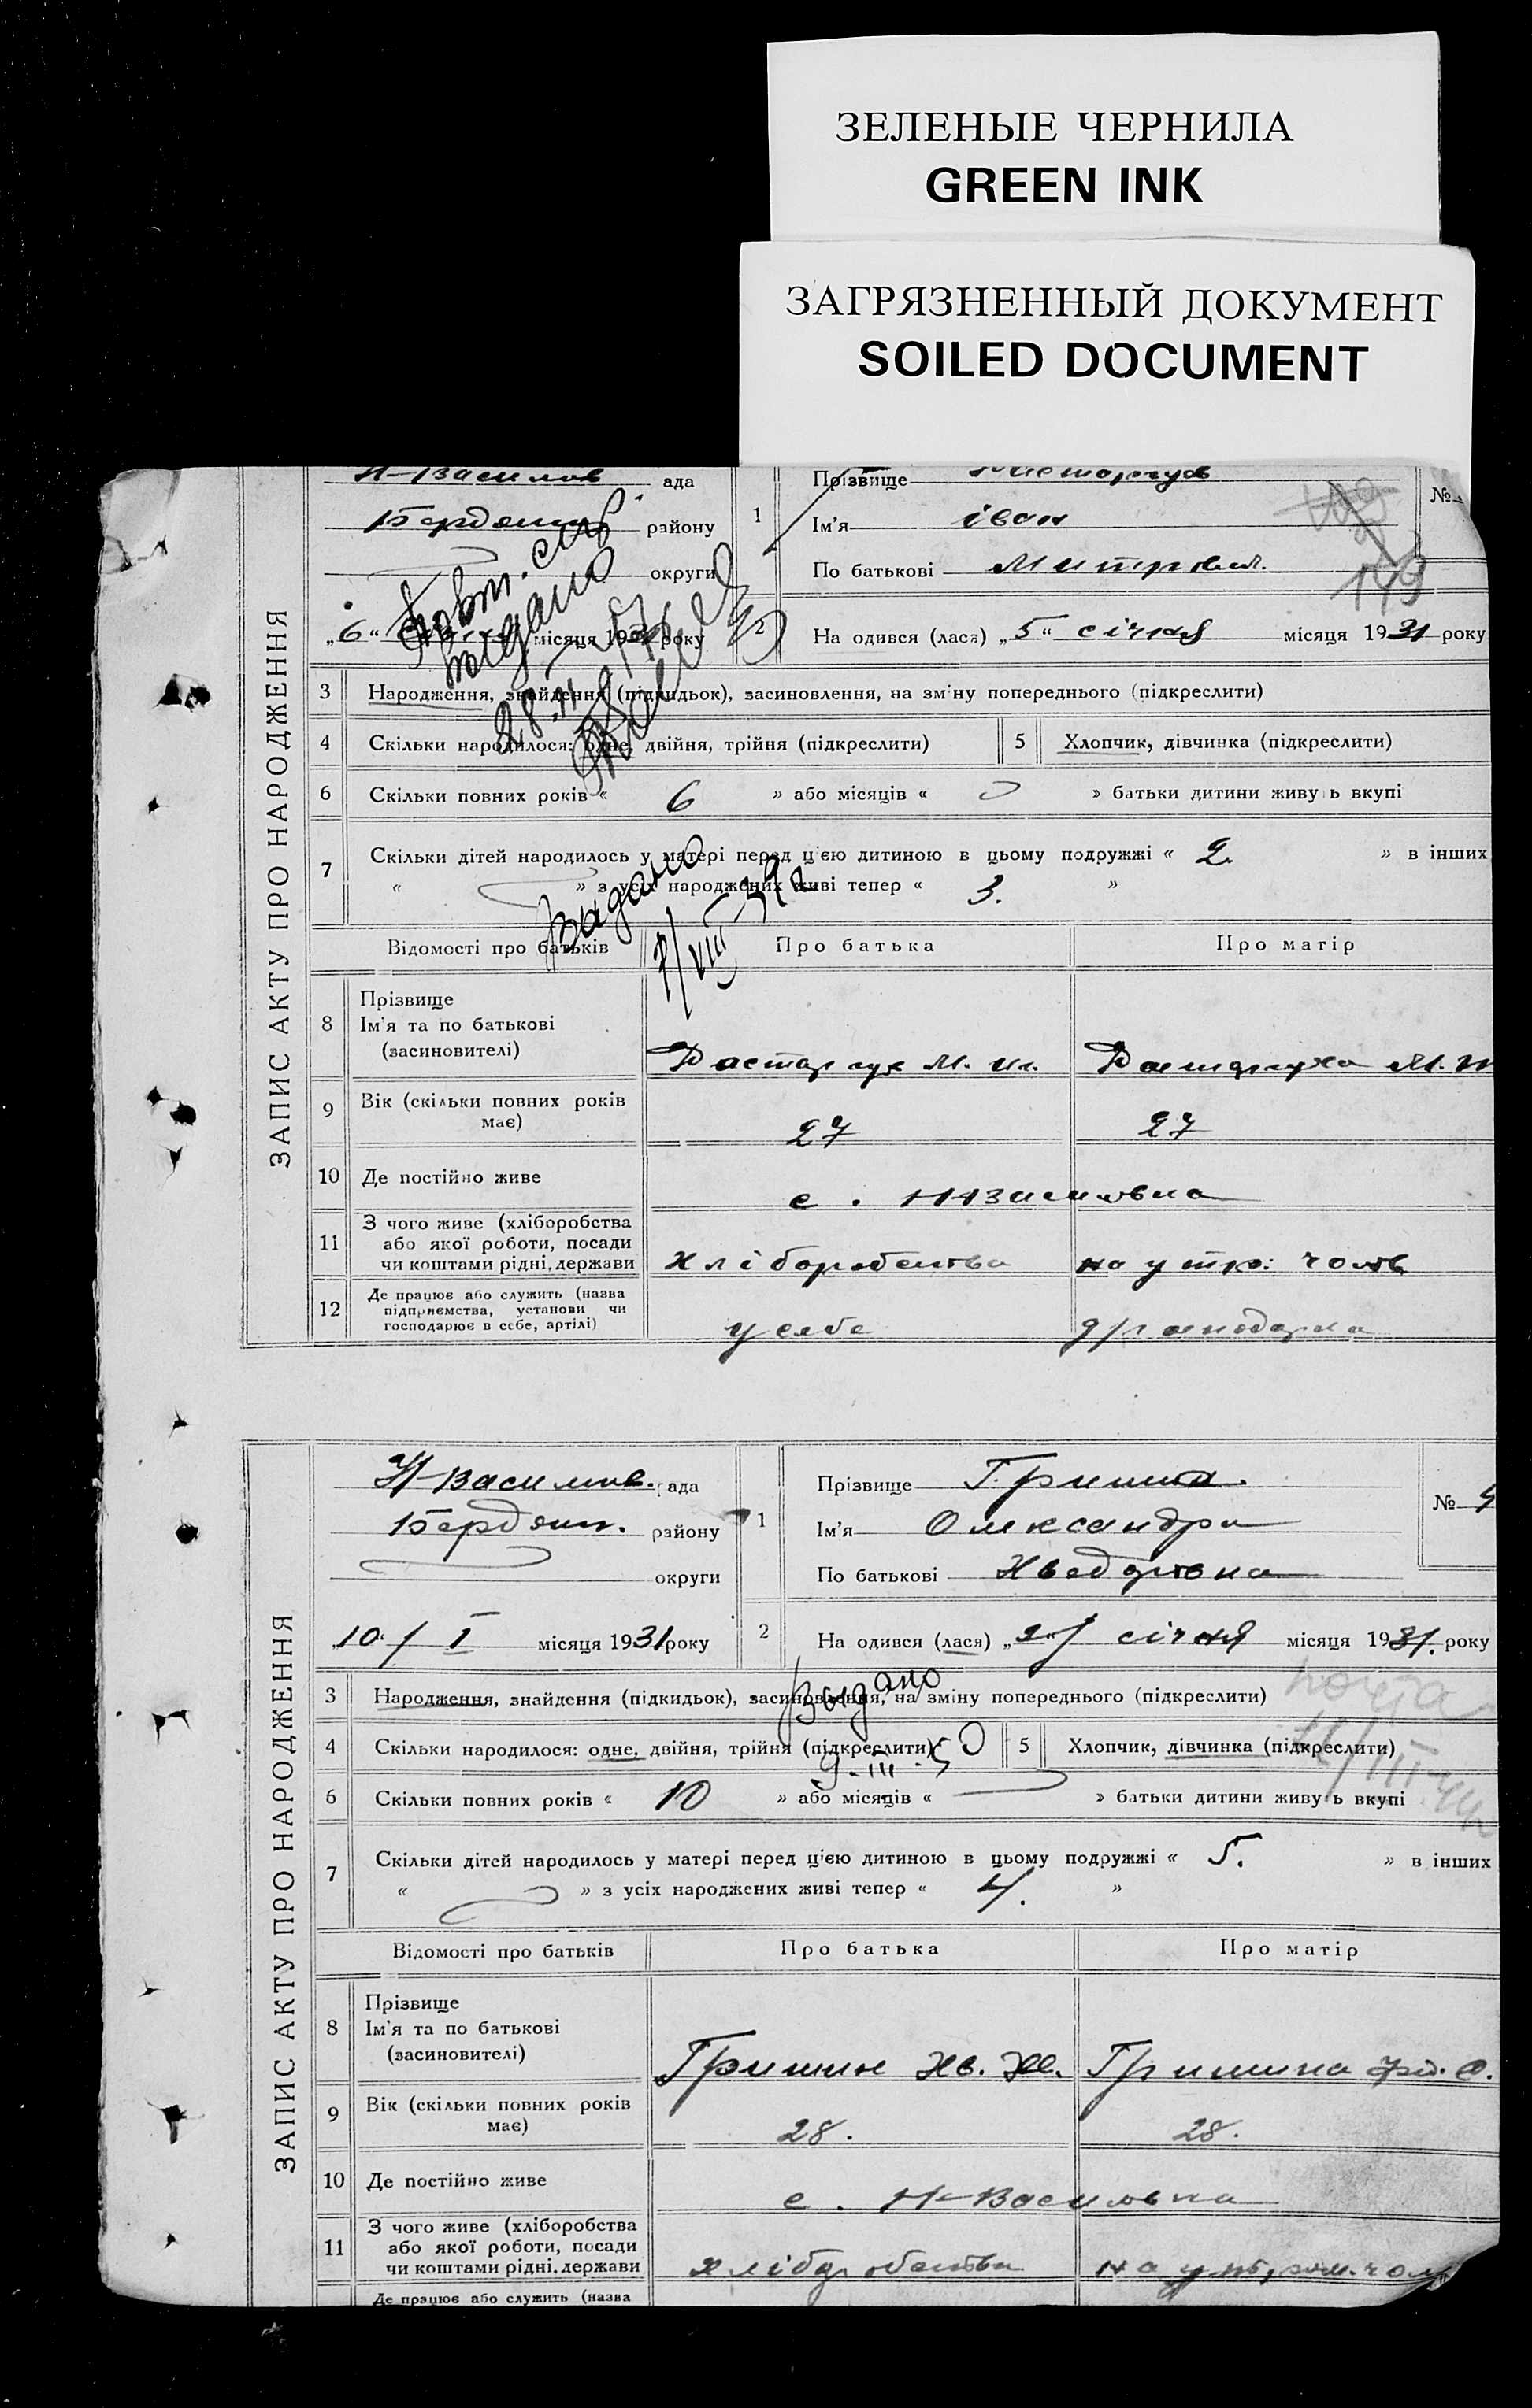 ЗЕЛЕНЫЕ ЧЕРНИЛА
GREEN INK
ЗАГРЯЗНЕННЫЙ ДОКУМЕНТ
SOILED DOCUMENT
ЗАПИС АКТУ ПРО НАРОДЖЕННЯ
Н-Василів ада
Бердянськ району
округи
„6“ місяця 1931 року
1 Прізвище
Ім'я іван
По батькові Митров.
№
149
2 На одився (лася) „5“ січня місяця 1931 року
Повт. свід.
видано
3 Народження, знайдення (підкидьок), засиновлення, на зміну попереднього (підкреслити)
4 Скільки народилося: одне, двійня, трійня (підкреслити) 5 Хлопчик, дівчинка (підкреслити)
6 Скільки повних років « 6 » або місяців « » батьки дитини живу ь вкупі
7 Скільки дітей народилось у матері перед цією дитиною в цьому подружжі « 2. » в інших
« » з усіх народжених живі тепер « 3. »
Видано
Відомості про батьків Про батька Про матір
8 Прізвище
Ім'я та по батькові
(засиновителі) Растаргуев М. Ил. Растаргуева М.
9 Вік (скільки повних років
має) 27 27
10 Де постійно живе с. Н-Василівна
11 З чого живе (хліборобства
або якої роботи, посади
чи коштами рідні, держави хліборобства на утр. чолов
12 Де працює або служить (назва
підприємства, установи чи
господарює в себе, артілі) у себе д/господарка
ЗАПИС АКТУ ПРО НАРОДЖЕННЯ
Н-Василів. ада
Бердянск. району
округи
„10“ / I місяця 1931 року
1 Прізвище Гришина.
Ім'я Олександра
По батькові Хведорівна
№ 4
2 На одився (лася) „2“ січня місяця 1931. року
3 Народження, знайдення (підкидьок), засиновлення, на зміну попереднього (підкреслити)
Выдано
9-III-50
4 Скільки народилося: одне, двійня, трійня (підкреслити) 5 Хлопчик, дівчинка (підкреслити)
6 Скільки повних років « 10 » або місяців « » батьки дитини живу ь вкупі
7 Скільки дітей народилось у матері перед цією дитиною в цьому подружжі « 5. » в інших
« » з усіх народжених живі тепер « 4. »
Відомості про батьків Про батька Про матір
8 Прізвище
Ім'я та по батькові
(засиновителі) Гришин Хв. Гришина О.
9 Вік (скільки повних років
має) 28. 28.
10 Де постійно живе с. Н-Василівна
11 З чого живе (хліборобства
або якої роботи, посади
чи коштами рідні, держави хліборобства на утрим. чол
Де працює або служить (назва